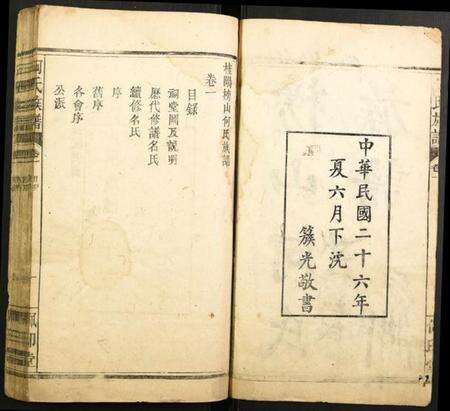 氏族譜
中華民國二十六年
夏六月下沈
簇光敬書
山何氏族譜
卷一
目錄
祠堂圖及説明
歷代修譜名氏
續修名氏
序
舊序
各會序
何氏族譜